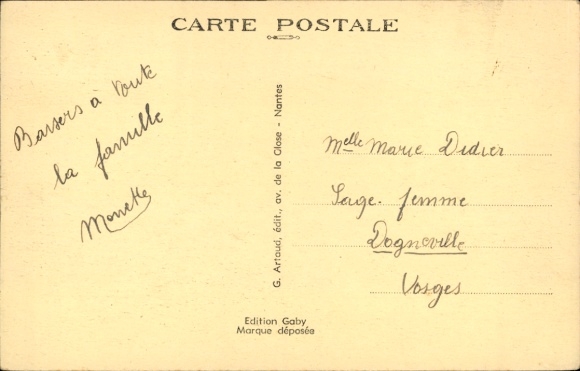 CARTE POSTALE
Baisers à toute
la famille
Monette
G. Artaud, édit., av. de la Close - Nantes
Melle Marie Didier
Sage-femme
Dogneville
Vosges
Edition Gaby
Marque déposée